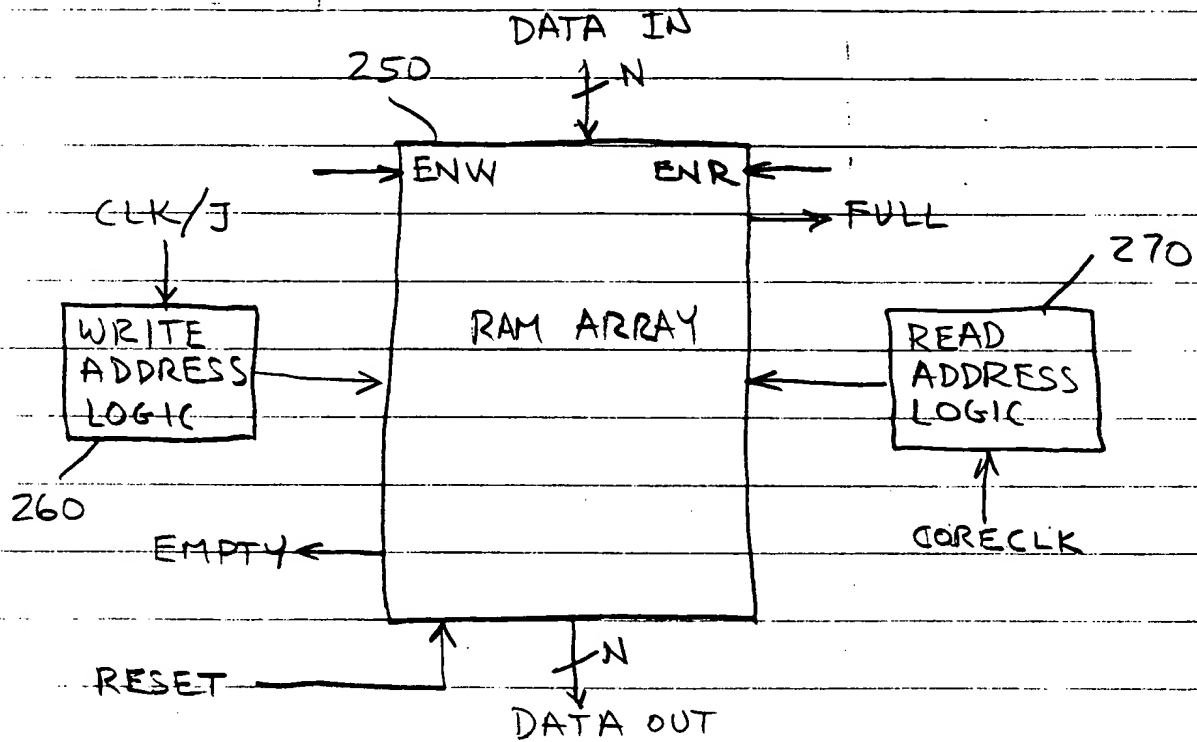 DATA IN
250
N
ENW
ENR
CLK/J
FULL
270
WRITE
ADDRESS
LOGIC
RAM ARRAY
READ
ADDRESS
LOGIC
260
EMPTY
CORECLK
N
RESET
DATA OUT